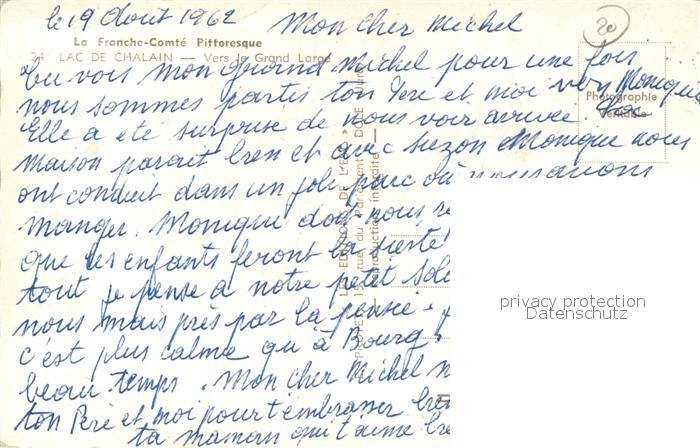 le 19 Août 1962 Mon cher Michel
La Franche-Comté Pittoresque
24 LAC DE CHALAIN — Vers le Grand Large
Tu vois mon grand Michel pour une fois
nous sommes partis ton Père et moi vers Monique
Elle a été surprise de nous voir arrivée.
maison parait bien et avec Suzon Monique nous
ont conduit dans un joli parc où nous avons
manger. Monique doit nous
que les enfants feront la sieste
tout je pense a notre petit
nous mais près par la pensée.
c'est plus calme qu'à Bourg
beau temps. Mon cher Michel
ton Père et moi pour t'embrasser
ta maman qui t'aime
20
Photographie
véritable
LES EDITIONS DE L'EST
rue du Parlement DOLE (Jura)
reproduction interdite
privacy protection
Datenschutz